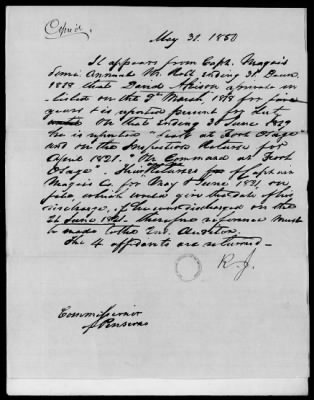 Copied
May 31. 1850
It appears from Capt. Magee's
Semi Annual Mr. Roll ending 31 Decr.
1818 that David Atkison a private en-
listed on the 9th March, 1818 for five
years & is reported present by Lieut
On that ending 30 June 1819
he is reported "Sick at Fort Osage"
and on the Inspection Returns for
April 1821. "On Command at Fort
Osage". The Returns of Captain
Magee's Co for May & June 1821, on
file which would give the date of his
discharge, if he was discharged on the
26 June 1821. therefore reference must
be made to the 2nd. Auditor.
The 4 affidavits are returned—
R. J.
Commissioner
of Pensions